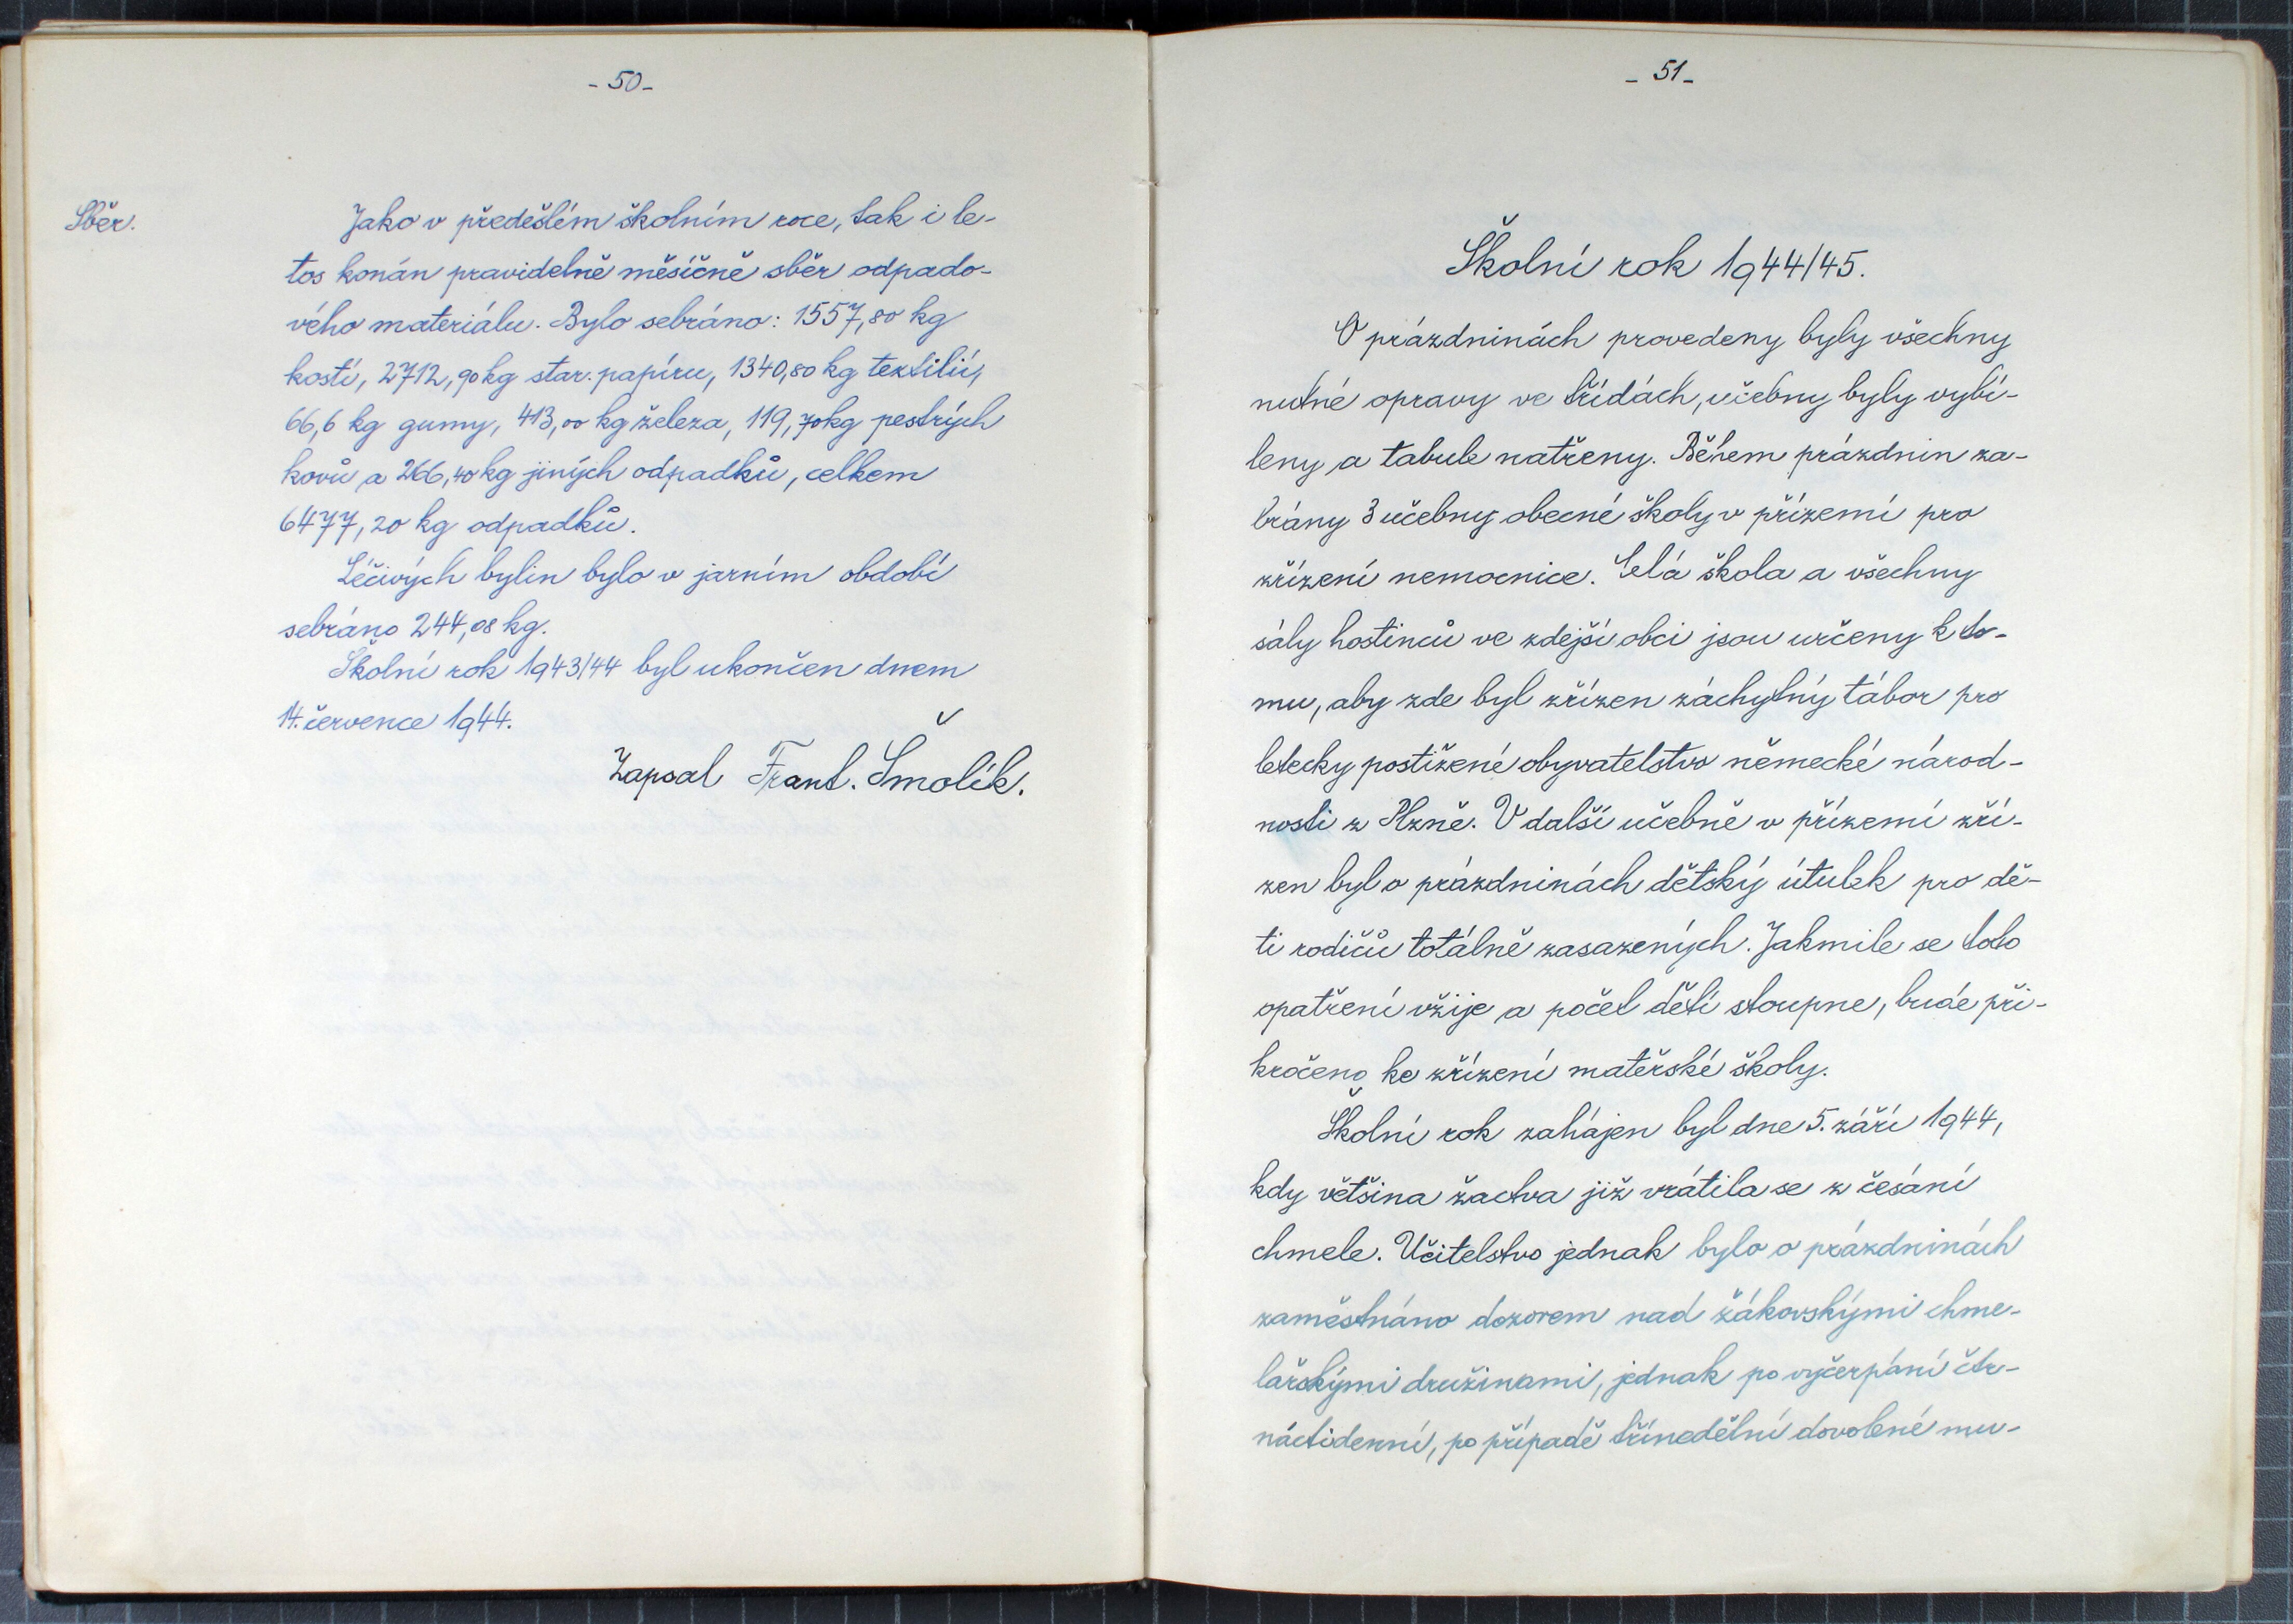 - 50 -
Sběr.
Jako v předešlém školním roce, tak i le-
tos konán pravidelně měsíčně sběr odpado-
vého materiálu. Bylo sebráno: 1557,80 kg
kostí, 2712,90 kg star. papíru, 1340,80 kg textilií,
66,6 kg gumy, 413,00 kg železa, 119,70 kg pestrých
kovů a 266,40 kg jiných odpadků, celkem
6477,20 kg odpadků.
Léčivých bylin bylo v jarním období
sebráno 244,08 kg.
Školní rok 1943/44 byl ukončen dnem
14. července 1944.
Zapsal Frant. Šmolík.
- 51 -
Školní rok 1944/45.
O prázdninách provedeny byly všechny
nutné opravy ve třídách, učebny byly vybí-
leny a tabule natřeny. Během prázdnin za-
brány 3 učebny obecné školy v přízemí pro
zřízení nemocnice. Celá škola a všechny
sály hostinců ve zdejší obci jsou určeny k to-
mu, aby zde byl zřízen záchytný tábor pro
letecky postižené obyvatelstvo německé národ-
nosti z Plzně. V další učebně v přízemí zří-
zen byl o prázdninách dětský útulek pro dě-
ti rodičů totálně zasazených. Jakmile se toto
opatření vžije a počet dětí stoupne, bude při-
kročeno ke zřízení mateřské školy.
Školní rok zahájen byl dne 5. září 1944,
kdy většina žactva již vrátila se z česání
chmele. Učitelstvo jednak bylo o prázdninách
zaměstnáno dozorem nad žákovskými chme-
lařskými družinami, jednak po vyčerpání čtr-
náctidenní, po případě třínedělní dovolené mu-